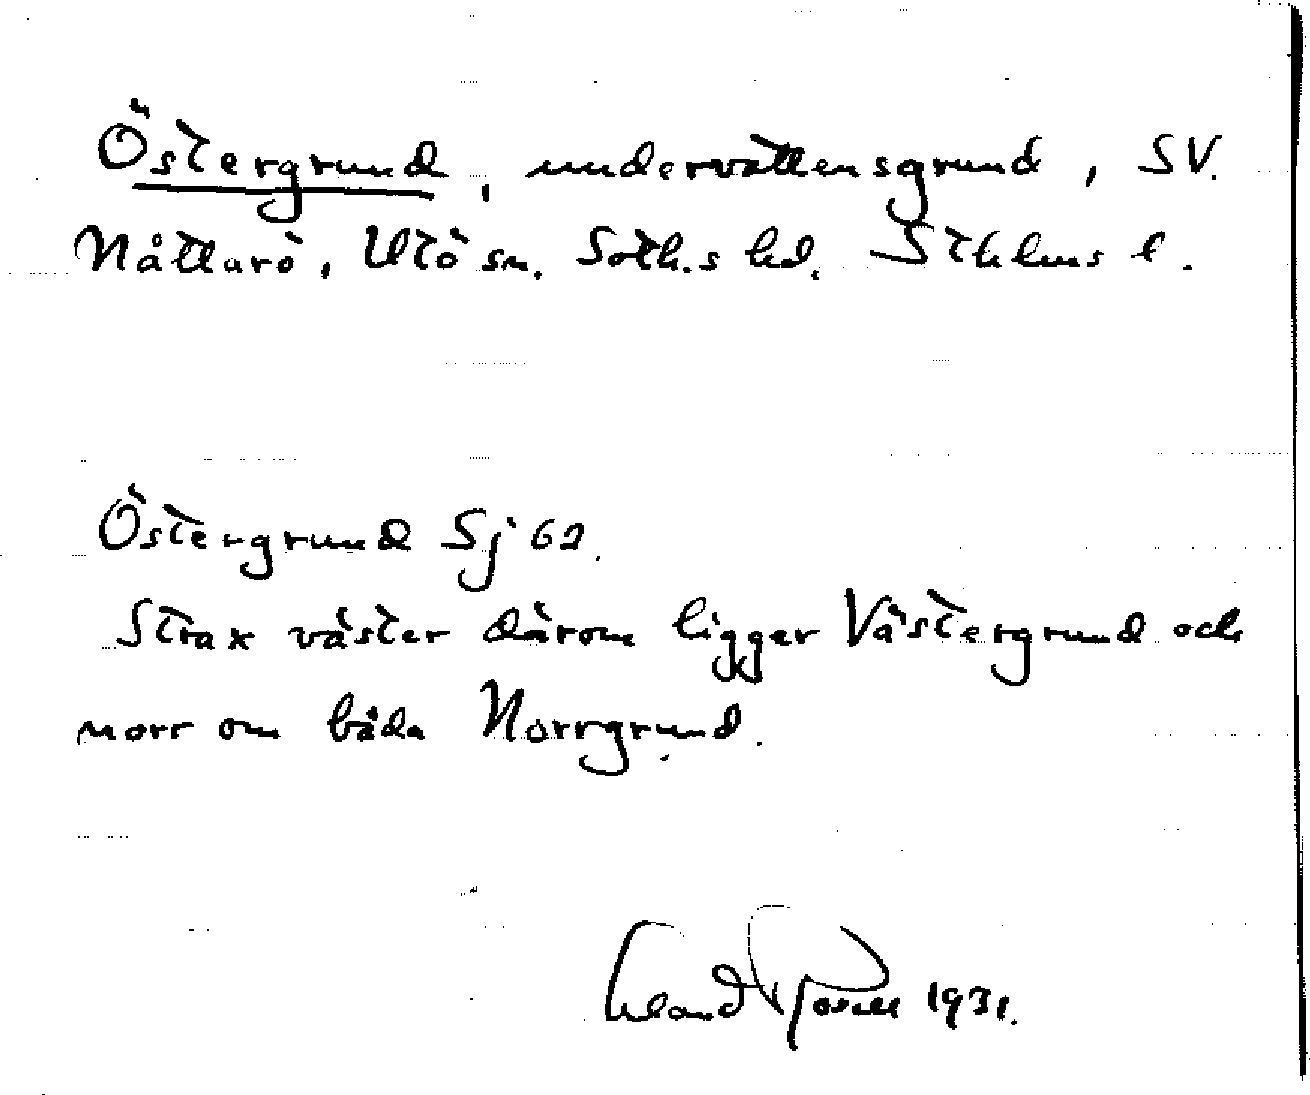 Östergrund, undervattensgrund, SV.
Nåttarö, Utö sn. Soth.s hd. Sthlms l.
Östergrund Sj 62.
Strax väster därom ligger Västergrund och
norr om båda Norrgrund.
Erland Rosell 1931.